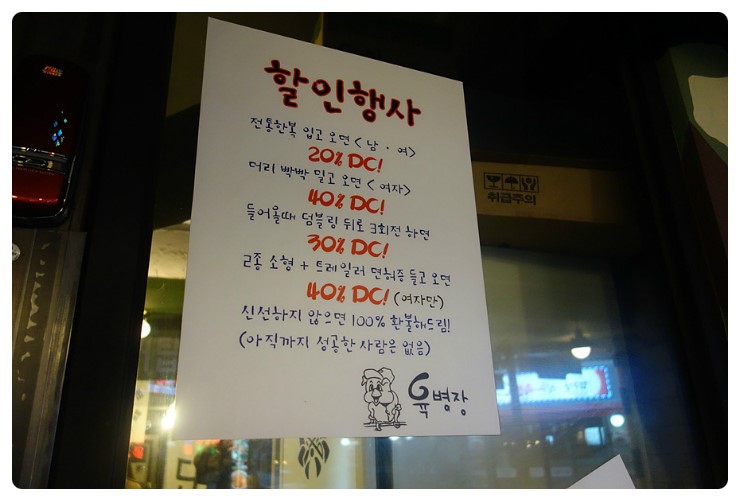 할인행사
전통한복 입고 오면 < 남 · 여>
20% DC!
머리 빡빡 밀고 오면 < 여자>
40% DC!
들어올때 덤블링 뒤로 3회전 하면
30% DC!
2종 소형 + 트레일러 면허증 들고 오면
40% DC! (여자만)
신선하지 않으면 100% 환불해드림!
(아직까지 성공한 사람은 없음)
육병장
취급주의